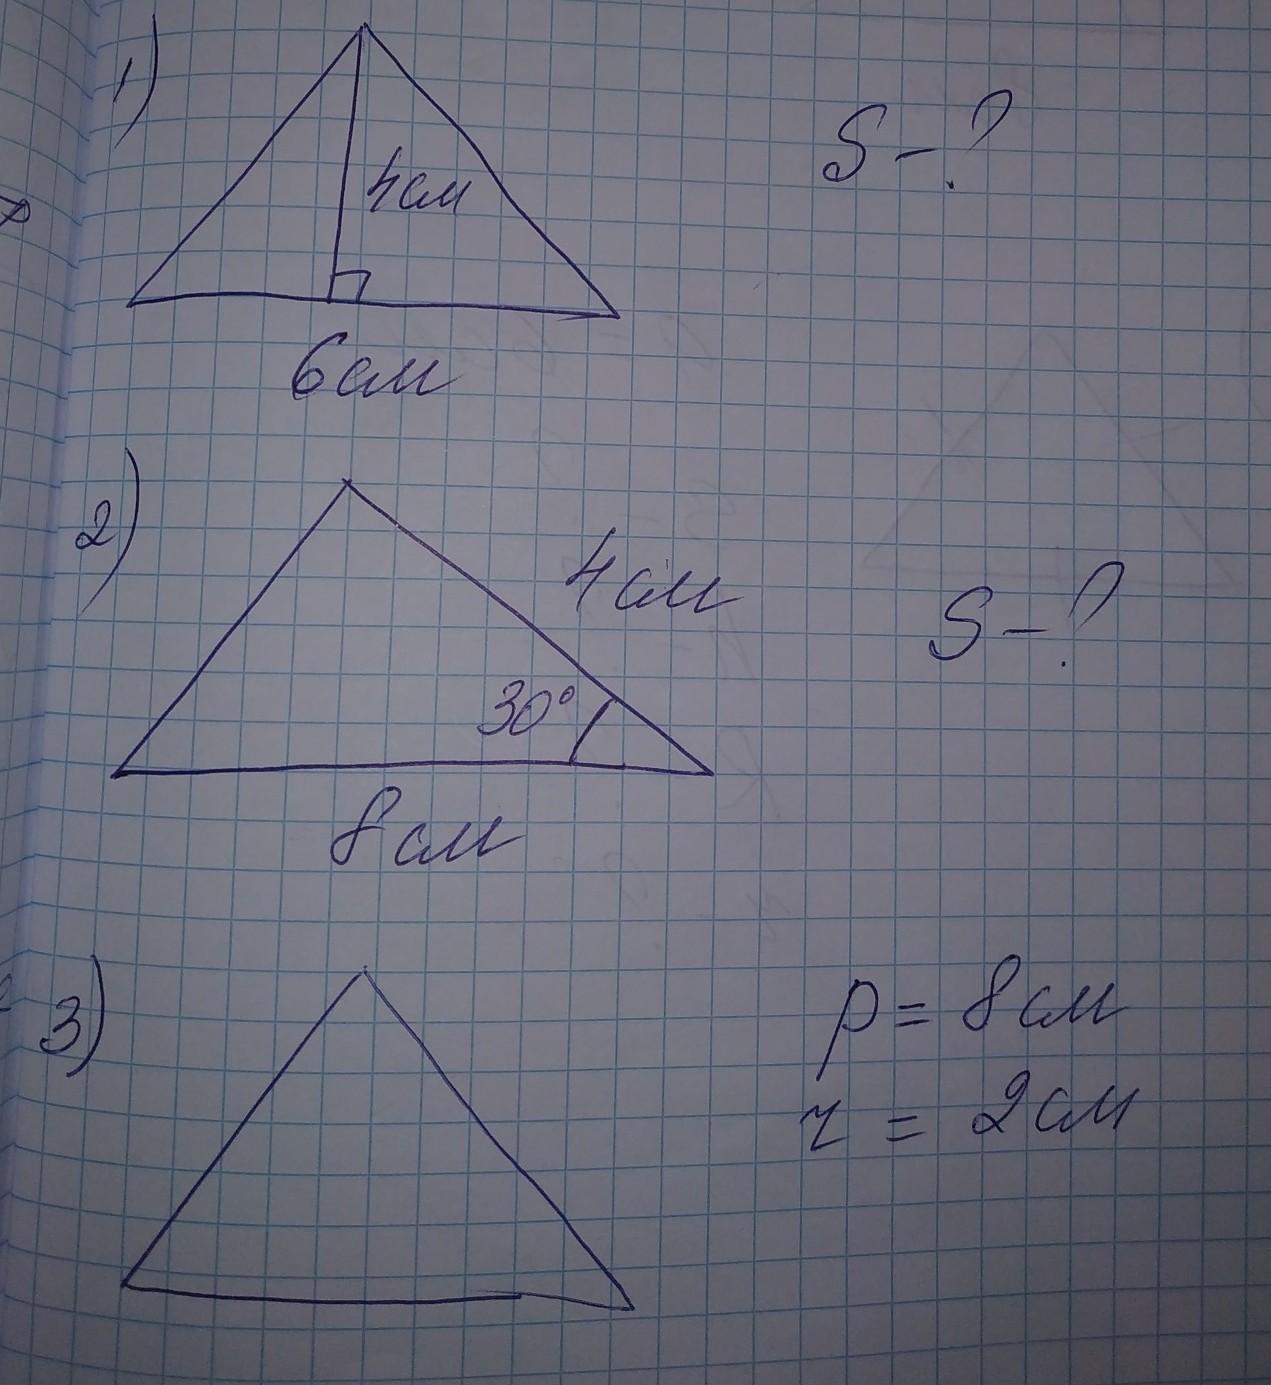 1)
4см
S - ?
6см
2)
4см
S - ?
30°
8см
3)
p = 8см
r = 2см